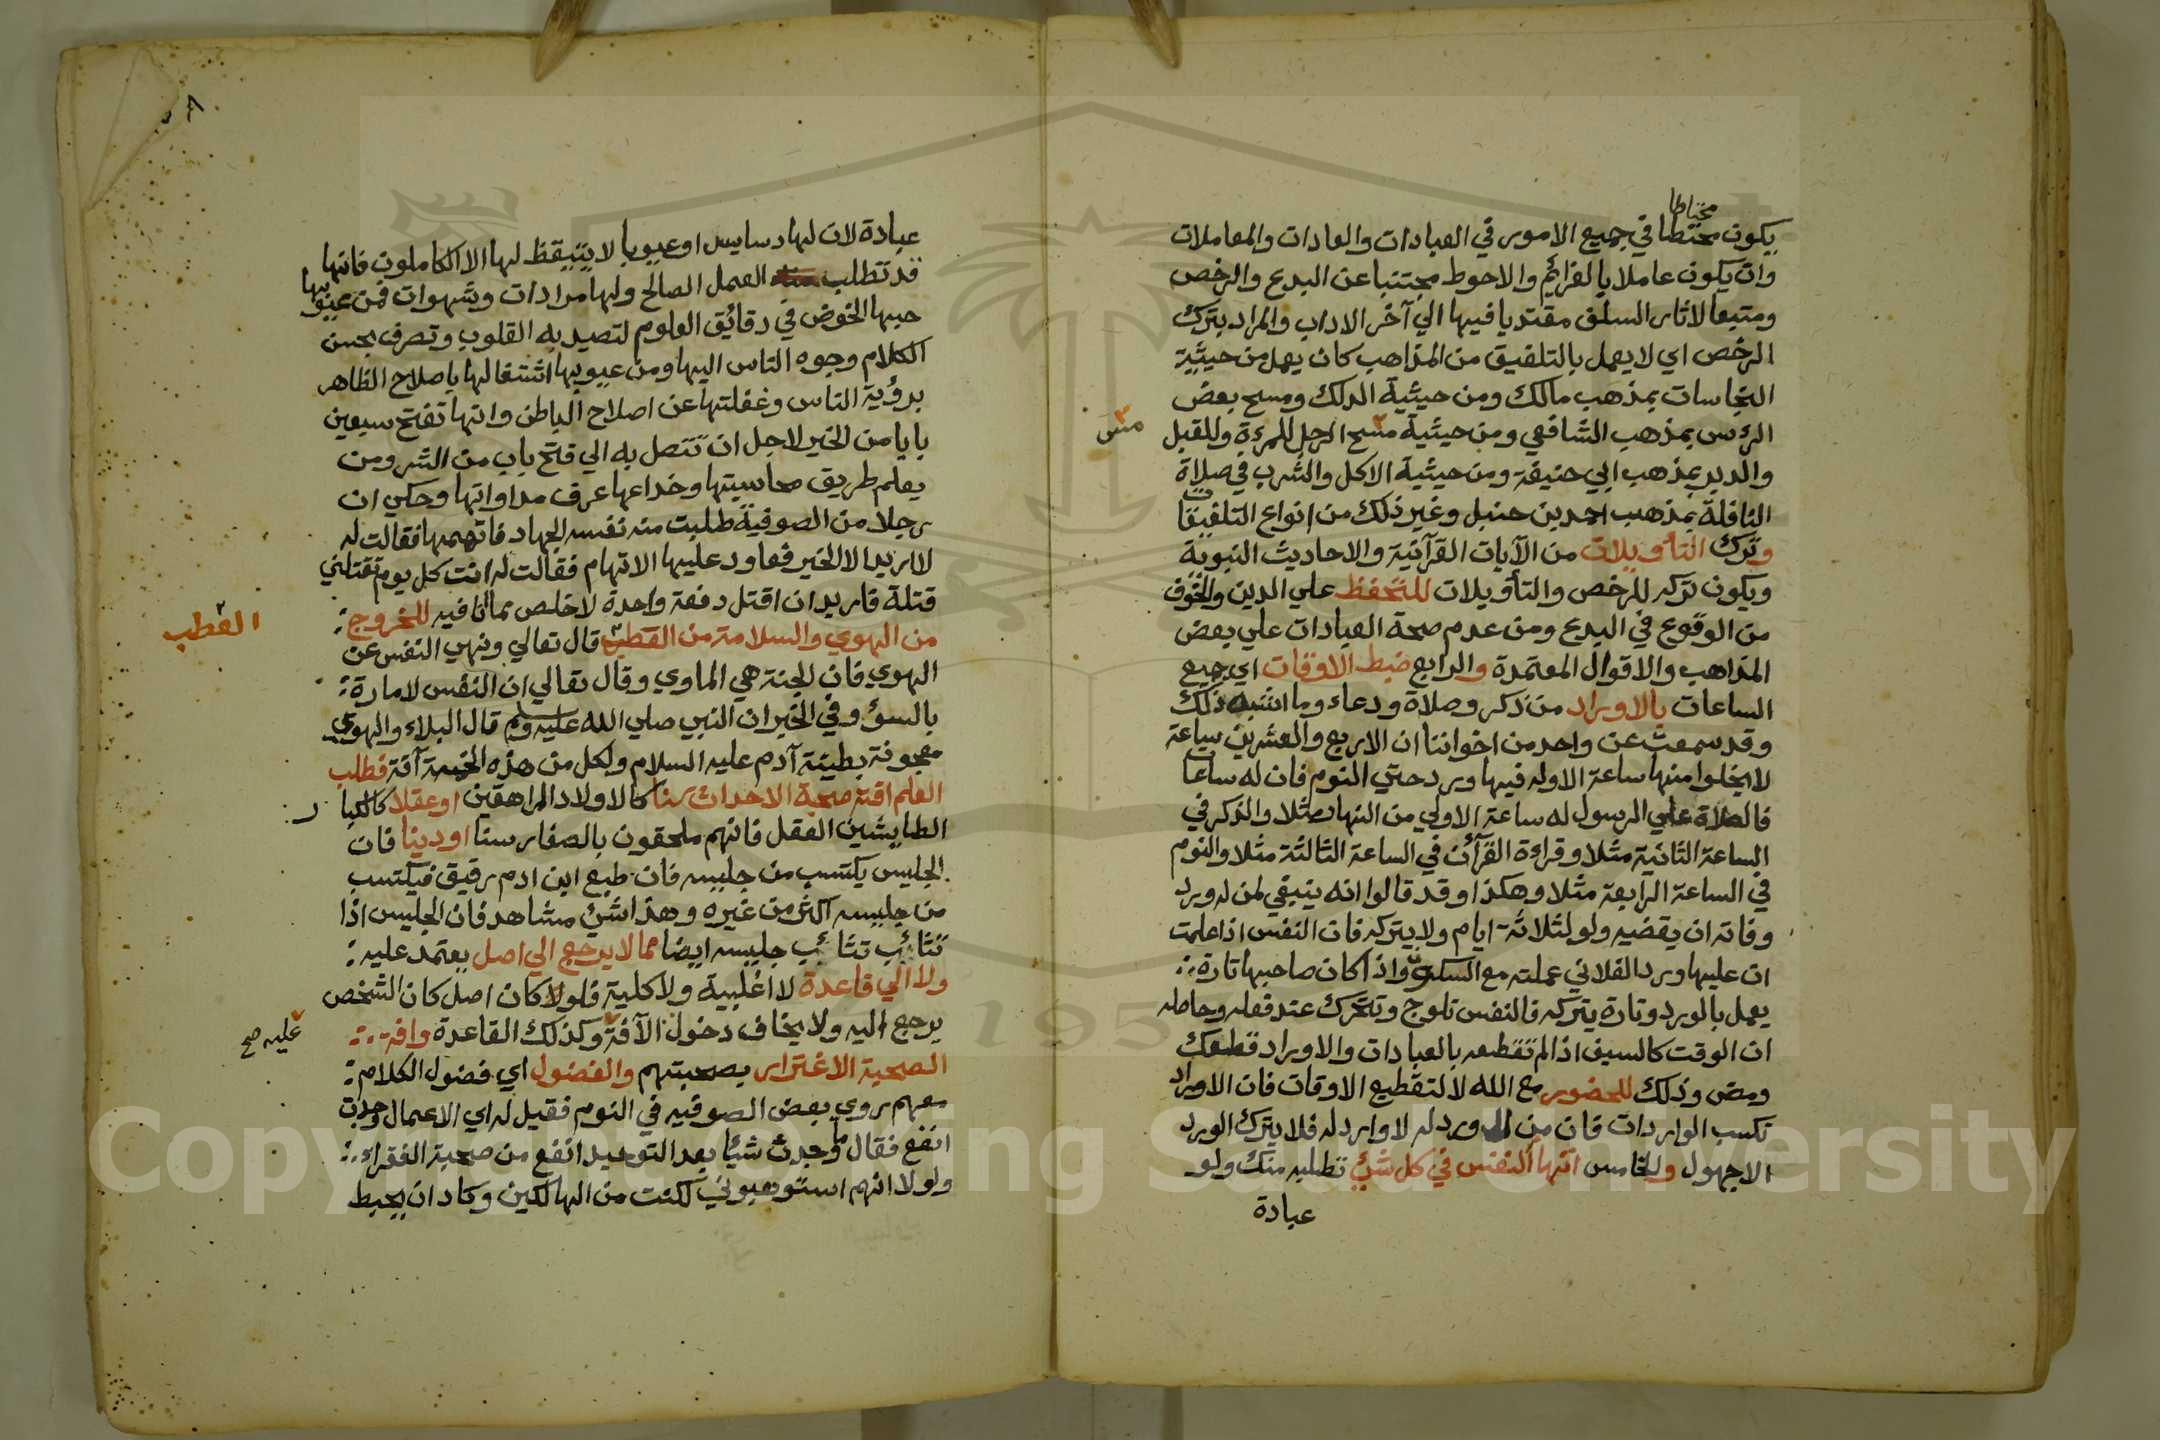 محتاطا
يكون محتطا في جميع الامور في العبادات والعادات والمعاملات
وان يكون عاملا بالعزائم والاحوط مجتنبا عن البدع والرخص
ومتبعا لاثار السلف مقتديا فيها الي آخر الاداب والمراد بترك
الرخص اي لا يعمل بالتلفيق من المذاهب كان يعمل من حيثية
النجاسات بمذهب مالك ومن حيثية الدلك ومسح بعض
الرؤس بمذهب الشافعي ومن حيثية مسح الرجل للمرءة وللقبل
مس
والدبر بمذهب ابي حنيفة ومن حيثية الاكل والشرب في صلاة
النافلة بمذهب احمد بن حنبل وغير ذلك من انواع التلفيقات
وترك التأويلات من الآيات القرآنية والاحاديث النبوية
ويكون تركه للرخص والتأويلات للتحفظ علي الدين والخوف
من الوقوع في البدع ومن عدم صحة العبادات علي بعض
المذاهب والاقوال المعتمدة والرابع ضبط الاوقات اي جميع
الساعات بالاوراد من ذكر وصلاة ودعاء وما اشبه ذلك
وقد سمعت عن واحد من اخواننا ان الاربع والعشرين ساعة
لا يخلوا منها ساعة الا وله فيها ورد حتي النوم فان له ساعات
فالصلاة علي الرسول له ساعة الاولي من النهار مثلا والذكر في
الساعة الثانية مثلا وقراءة القرآن في الساعة الثالثة مثلا والنوم
في الساعة الرابعة مثلا وهكذا وقد قالوا انه ينبغي لمن له ورد
وفاته ان يقضيه ولو لثلاثة ايام ولا يتركه فان النفس اذا علمت
ان عليها ورد الفلاني عملته مع السكوت واذا كان صاحبها تارة
يعمل بالورد وتارة يتركه فالنفس تلوج وتتحرك عند فعله وحاصله
ان الوقت كالسيف اذا لم تقطعه بالعبادات والاوراد قطعك
ومض وذلك للحضور مع الله لا لتقطيع الاوقات فان الاوراد
تكسب الواردات فان من لا ورد له لا وارد له فلا يترك الورد
الا جهول والخامس اتهام النفس في كل شئ تطلبه منك ولو
عبادة
٨
عبادة لان لها دسايس اوعيوبا لا يتيقظ لها الا الكاملون فانها
قد تطلب العمل الصالح ولها مرادات وشهوات فمن عيوبها
حبها الخوض في دقائق العلوم لتصيد به القلوب وتصرف بحسن
الكلام وجوه الناس اليها ومن عيوبها اشتغالها باصلاح الظاهر
برؤية الناس وغفلتها عن اصلاح الباطن وانها تفتح سبعين
بابا من الخير لاجل ان تتصل به الي فتح باب من الشر ومن
يعلم طريق محاسبتها وخداعها عرف مداواتها وحكي ان
رجلا من الصوفية طلبت منه نفسه الجهاد فاتهمها فقالت له
لا اريد الا الخير فعاود عليها الاتهام فقالت له انت كل يوم تقتلني
قتلة فاريد ان اقتل دفعة واحدة لاخلص مما انا فيه للخروج
من الهوي والسلامة من القطب قال تعالي ونهي النفس عن
القطب
الهوي فان الجنة هي الماوي وقال تعالي ان النفس لامارة
بالسؤ وفي الخير ان النبي صلي الله عليه وسلم قال البلاء والهوي
معجونة بطينة آدم عليه السلام ولكل من هذه الخمسة آفة فطلب
العلم افته صحبة الاحداث سنا كالاولاد المراهقين اوعقلا كالكبا
ر
الطايشين العقل فانهم ملحقون بالصغار سنا اودينا فان
الجليس يكتسب من جليسه فان طبع ابن ادم رقيق فيكتسب
من جليسه اكثر من غيره وهذا شئ مشاهد فان الجليس اذا
تثائب تثائب جليسه ايضا مما لا يرجع الي اصل يعتمد عليه
ولا الي قاعدة لا اغلبية ولا كلية فلو كان اصل كان الشخص
يرجع اليه ولا يخاف دخول الآفة وكذلك القاعدة وافة
عليه صح
الصحبة الاغترار بصحبتهم والفضول اي فضول الكلام
معهم روي بعض الصوفيه في النوم فقيل له اي الاعمال وجدت
انفع فقال ما وجدت شيأ بعد التوحيد انفع من صحبة الفقراء
ولولا انهم استوهبوني لكنت من الهالكين وكاد ان يحبط
Copyright © King Saud University
195